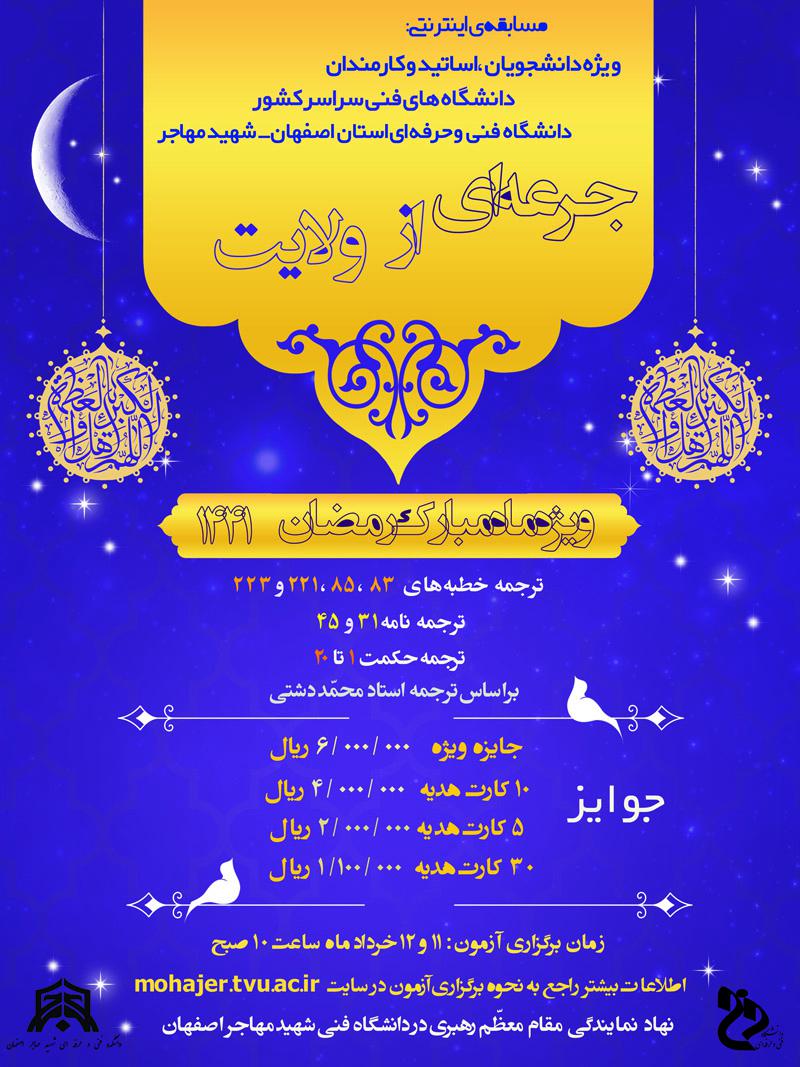 مسابقه‌ی اینترنتی:
ویژه دانشجویان، اساتید و کارمندان
دانشگاه های فنی سراسر کشور
دانشگاه فنی و حرفه ای استان اصفهان_ شهید مهاجر
جرعه‌ای از ولایت
ویژه ماه مبارک رمضان ۱۴۴۱
ترجمه خطبه‌های ۸۳ ، ۸۵ ،۲۲۱ و ۲۲۳
ترجمه نامه ۳۱ و ۴۵
ترجمه حکمت ۱ تا ۲۰
براساس ترجمه استاد محمّد دشتی
جوایز
جایزه ویژه ۶/۰۰۰/۰۰۰ ریال
۱۰ کارت هدیه ۴/۰۰۰/۰۰۰ ریال
۵ کارت هدیه ۲/۰۰۰/۰۰۰ ریال
۳۰ کارت هدیه ۱/۱۰۰/۰۰۰ ریال
زمان برگزاری آزمون: ۱۱ و ۱۲ خرداد ماه ساعت ۱۰ صبح
اطلاعات بیشتر راجع به نحوه برگزاری آزمون در سایت mohajer.tvu.ac.ir
نهاد نمایندگی مقام معظّم رهبری در دانشگاه فنی شهید مهاجر اصفهان
دانشکده فنی و حرفه ای شهید مهاجر اصفهان
دانشگاه
فنی و حرفه‌ای